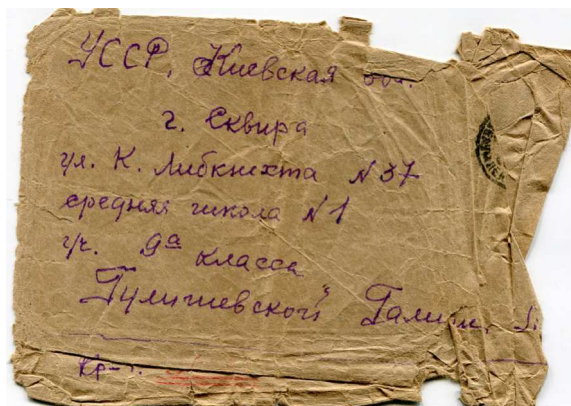 УССР, Киевская обл.
г. Сквира
ул. К. Либкнихта N 37
средняя школа N 1
уч. 9а класса
Гулишевской